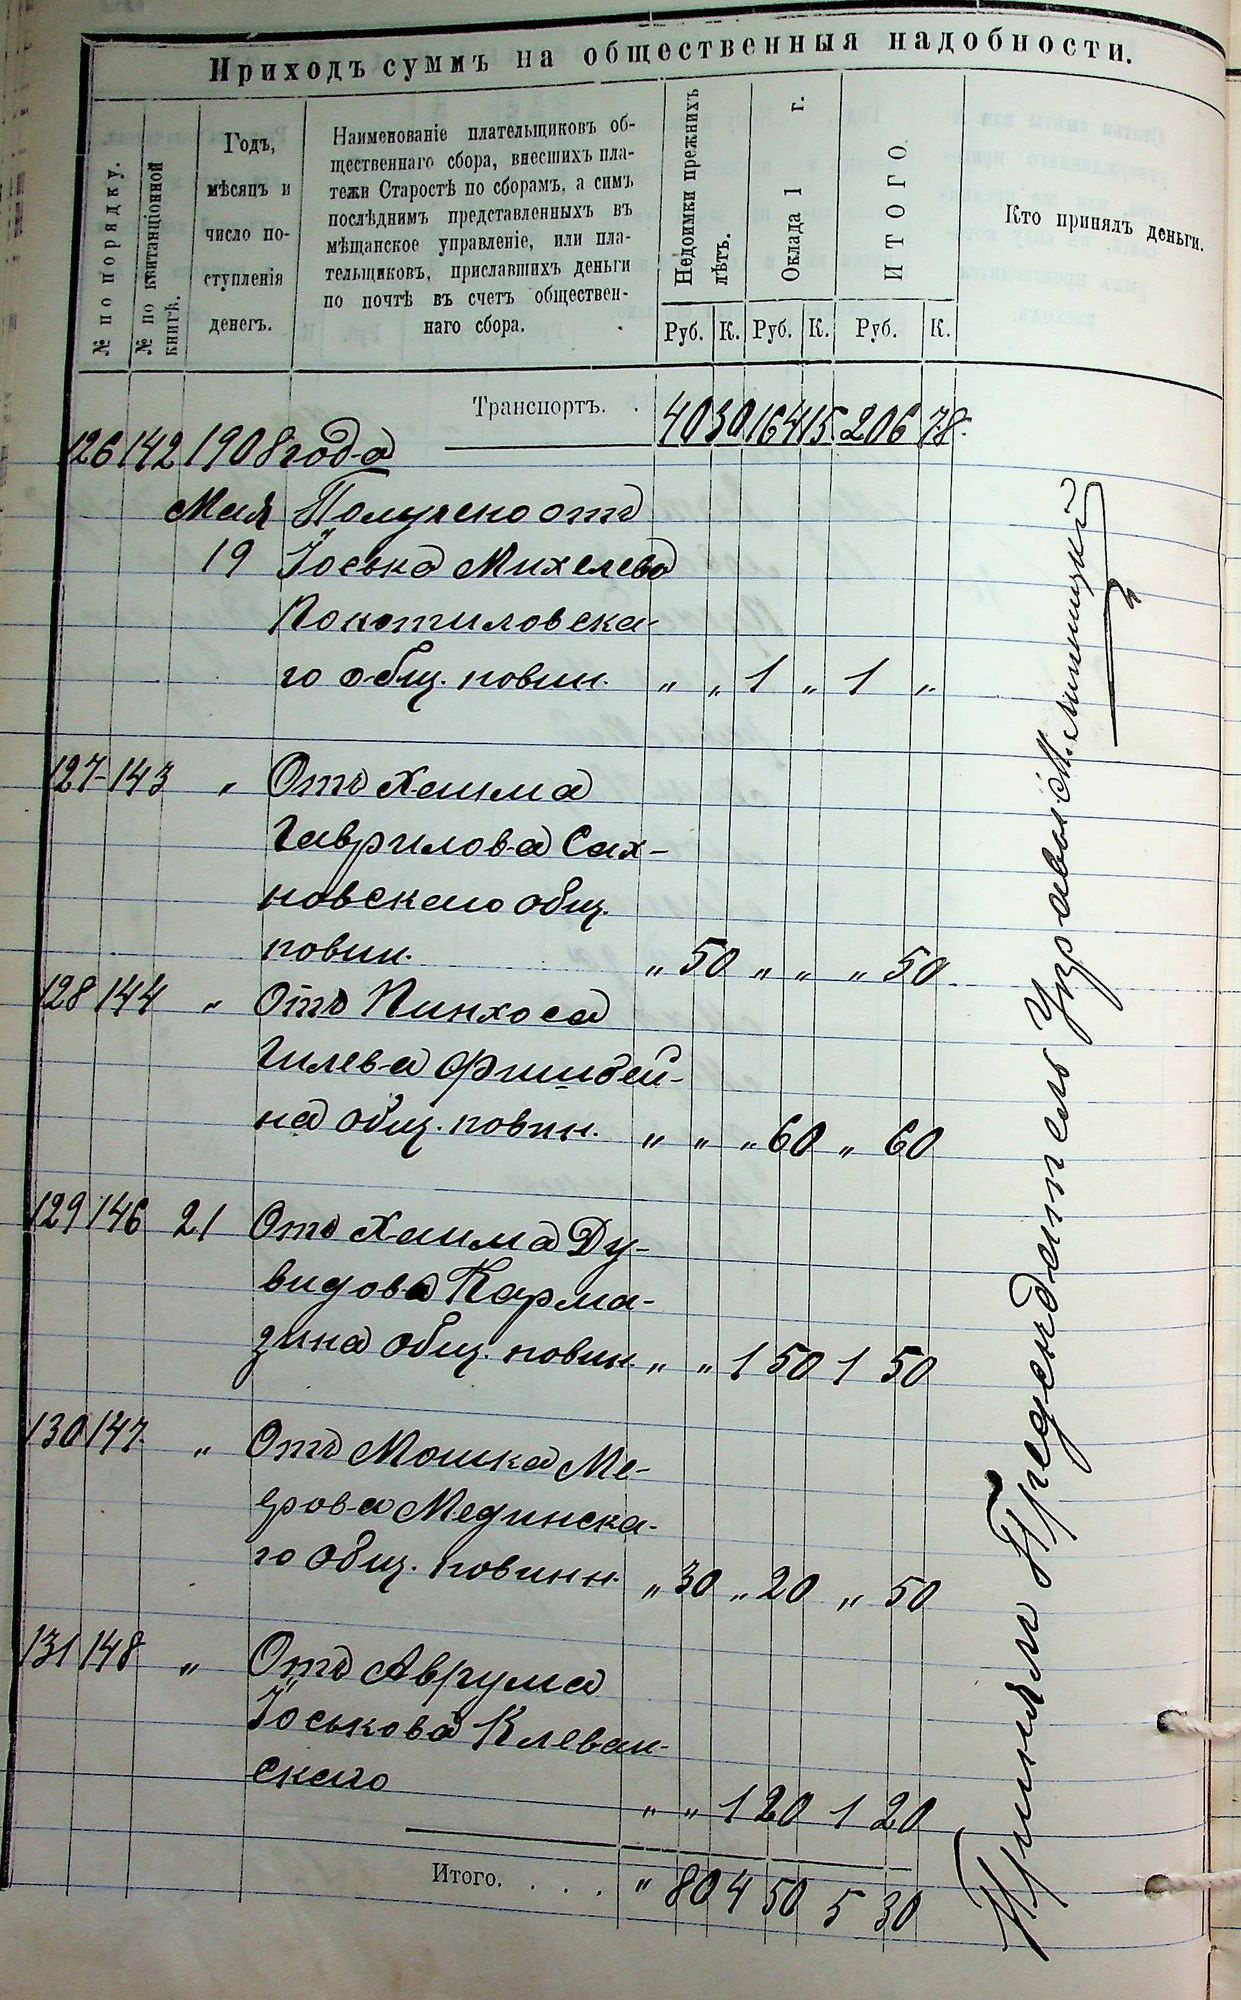 Приходъ суммъ на общественныя надобности.
№ по порядку.
№ по квитанціонной книгѣ.
Годъ,
мѣсяцъ и
число по-
ступленія
денегъ.
Наименованіе плательщиковъ об-
щественнаго сбора, внесшихъ пла-
тежи Старостѣ по сборамъ, а симъ
послѣднимъ представленныхъ въ
мѣщанское управленіе, или пла-
тельщиковъ, приславшихъ деньги
по почтѣ въ счетъ обществен-
наго сбора.
Недоимки прежнихъ лѣтъ.
Оклада 1 г.
ИТОГО.
Кто принялъ деньги.
Руб. К. Руб. К. Руб. К.
Транспортъ. . 40 30 164 15 206 78
126 142 1908 года
Мая Получено отъ
19 Іоська Михелева
Покотиловска-
го общ. повин. " " 1 " 1 "
127 143 " Отъ Хаима
Гаврилова Сах-
новскаго общ.
повин. " 50 " " " 50
128 144 " Отъ Пинхоса
Гилева Фишбей-
на общ. повин. " " " 60 " 60
129 146 21 Отъ Хаима Ду-
видова Карма-
зина общ. повин. " " 1 50 1 50
130 147 " Отъ Мошка Ме-
ерова Мединска-
го общ. повинн. " 30 " 20 " 50
131 148 " Отъ Аврума
Іоськова Клеван-
скаго " " 1 20 1 20
Итого. . . . " 80 4 50 5 30
Принялъ Предсѣдатель Управы